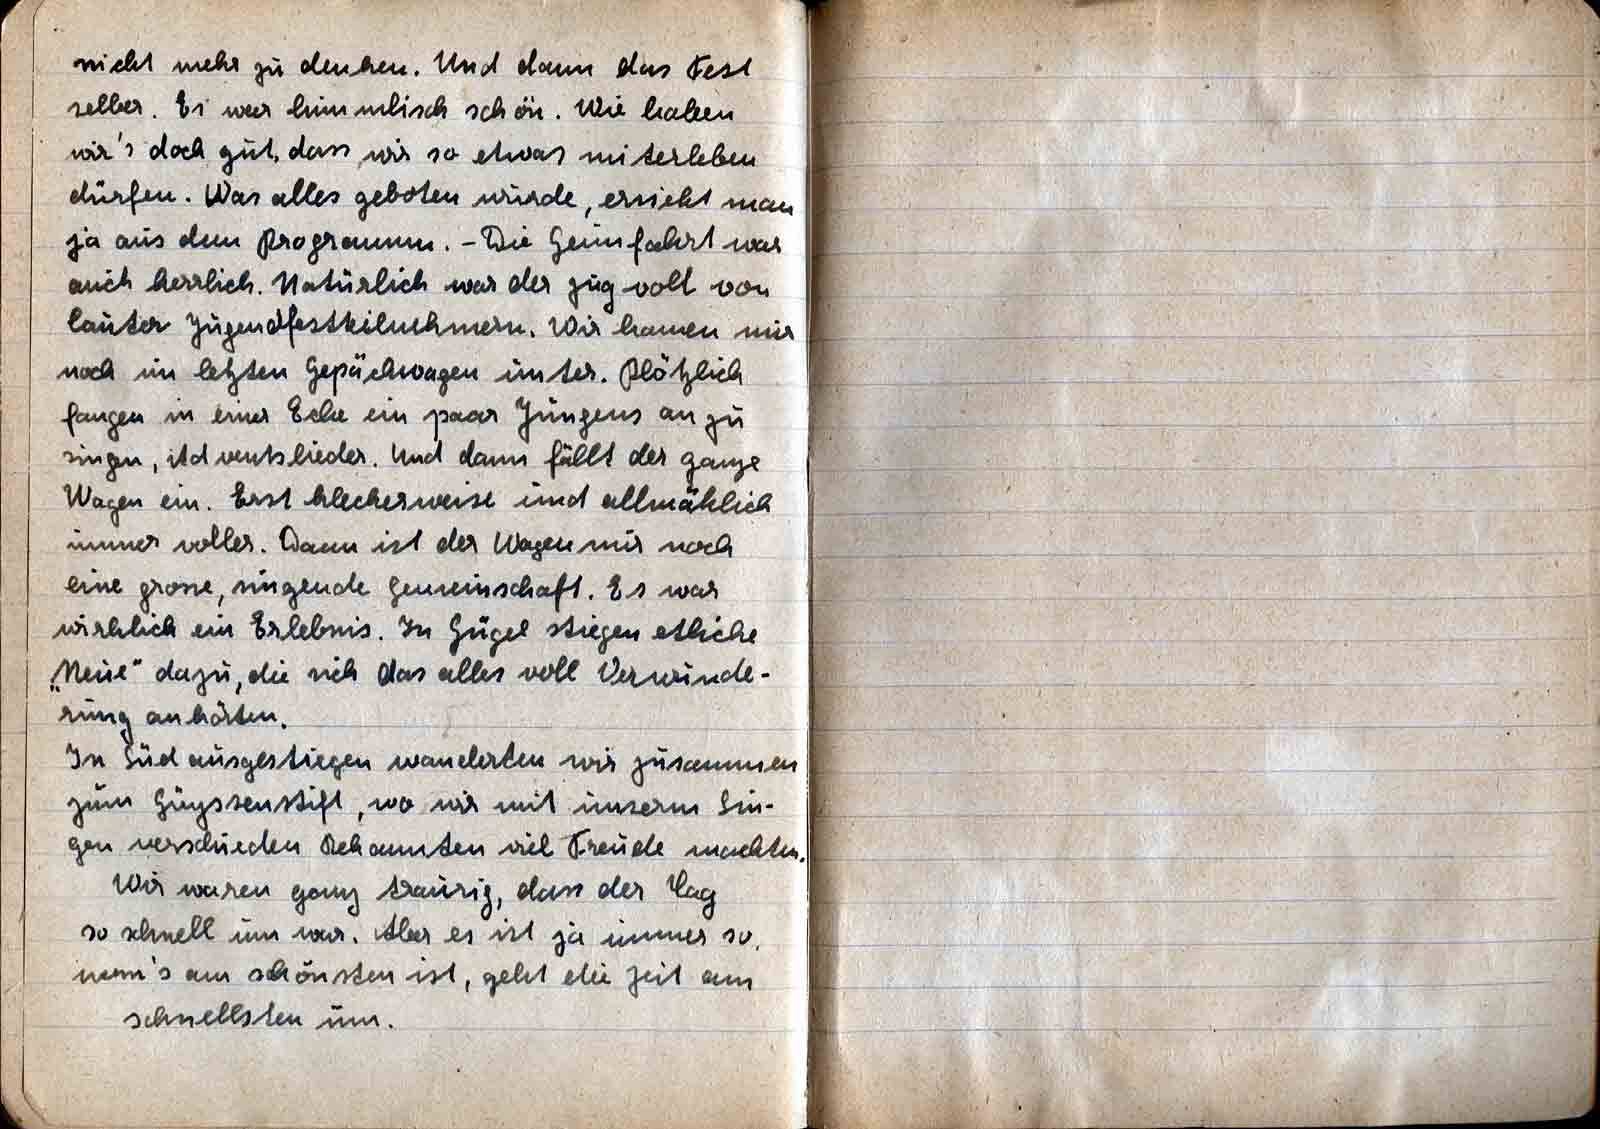 nicht mehr zu denken. Und dann das Fest
selber. Es war himmlisch schön. Wie haben
wir's doch gut, dass wir so etwas miterleben
dürfen. Was alles geboten wurde, ersieht man
ja aus dem Programm. - Die Heimfahrt war
auch herrlich. Natürlich war der Zug voll von
lauter Jugendfestteilnehmern. Wir kamen nur
noch im letzten Gepäckwagen unter. Plötzlich
fangen in einer Ecke ein paar Jungens an zu
singen, Adventslieder. Und dann fällt der ganze
Wagen ein. Erst kleckerweise und allmählich
immer voller. Dann ist der Wagen nur noch
eine grosse, singende Gemeinschaft. Es war
wirklich ein Erlebnis. In stiegen etliche
„Neue" dazu, die sich das alles voll Verwunde-
rung anhörten.
In Süd ausgestiegen wanderten wir zusammen
zum, wo wir mit unserm Sin-
gen verschieden Bekannten viel Freude machten.
Wir waren ganz traurig, dass der Tag
so schnell um war. Aber es ist ja immer so,
wenn's am schönsten ist, geht die Zeit am
schnellsten um.